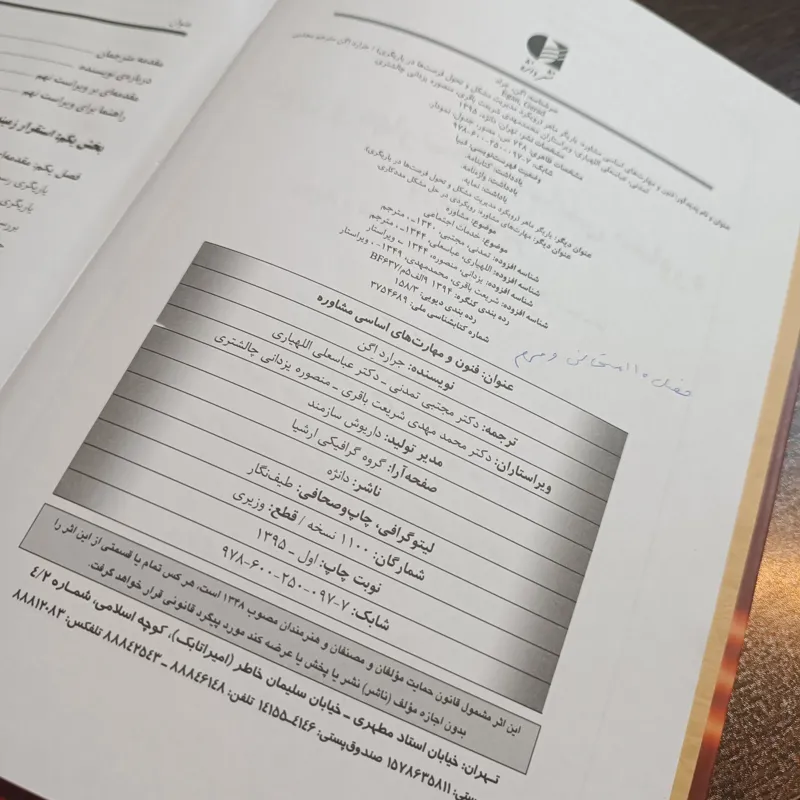 عنوان
مقدمه مترجمان
درباره‌ی نویسنده
مقدمه‌ای بر ویراست نهم
راهنما برای ویراست نهم
بخش یکم: استقرار
فصل یکم: مقدمه‌ای
نشر دانژه
سرشناسه: اگن، جرارد
Egan, Gerard
عنوان و نام پدیدآور: فنون و مهارت‌های اساسی مشاوره: یاریگر ماهر (رویکرد مدیریت مشکل و تحول فرصت‌ها در یاریگری) / جرارد اگن مترجم مجتبی
تمدنی، عباسعلی اللهیاری؛ ویراستاران محمدمهدی شریعت باقری، منصوره یزدانی چالشتری
مشخصات نشر: تهران: دانژه، ۱۳۹۵
مشخصات ظاهری: ۷۲۸ ص. مصور، جدول، نمودار
شابک: ۷-۰۹۷-۲۵۰-۶۰۰-۹۷۸
وضعیت فهرست‌نویسی: فیپا
یادداشت: کتابنامه.
یادداشت: واژه‌نامه.
یادداشت: نمایه.
عنوان دیگر: یاریگر ماهر (رویکرد مدیریت مشکل و تحول فرصت‌ها در یاریگری)
عنوان دیگر: مهارت‌های مشاوره: رویکردی در حل مشکل مددکاری
موضوع: مشاوره
موضوع: خدمات اجتماعی
شناسه افزوده: تمدنی، مجتبی، ۱۳۴۰ـ، مترجم
شناسه افزوده: اللهیاری، عباسعلی، ۱۳۴۴ـ، مترجم
شناسه افزوده: یزدانی، منصوره، ۱۳۴۴ ـ ویراستار
شناسه افزوده: شریعت باقری، محمدمهدی، ۱۳۴۹- ، ویراستار
رده بندی کنگره: ۱۳۹۴ ۹الف۵م/BF۶۳۷
رده بندی دیویی: ۱۵۸/۳
شماره کتابشناسی ملی: ۳۷۵۴۶۸۹
فصل ۱۰ امتحانی و مهم
عنوان: فنون و مهارت‌های اساسی مشاوره
نویسنده: جرارد اگن
ترجمه: دکتر مجتبی تمدنی ـ دکتر عباسعلی اللهیاری
ویراستاران: دکتر محمد مهدی شریعت باقری ـ منصوره یزدانی چالشتری
مدیر تولید: داریوش سازمند
صفحه‌آرا: گروه گرافیکی ارشیا
ناشر: دانژه
لیتوگرافی، چاپ‌وصحافی: طیف‌نگار
شمارگان: ۱۱۰۰ نسخه / قطع: وزیری
نوبت چاپ: اول ـ ۱۳۹۵
شابک: ۷-۰۹۷-۲۵۰-۶۰۰-۹۷۸
این اثر مشمول قانون حمایت مؤلفان و مصنفان و هنرمندان مصوب ۱۳۴۸ است، هر کس تمام یا قسمتی از این اثر را
بدون اجازه مؤلف (ناشر) نشر یا پخش یا عرضه کند مورد پیگرد قانونی قرار خواهد گرفت.
تهران: خیابان استاد مطهری ـ خیابان سلیمان خاطر (امیراتابک)، کوچه اسلامی، شماره ۴/۲
۱۵۷۸۶۳۵۸۱۱ صندوق‌پستی: ۴۱۴۶ـ۱۴۱۵۵ تلفن: ۸۸۸۴۶۱۴۸ ـ ۸۸۸۴۲۵۴۳ تلفکس: ۸۸۸۱۲۰۸۳